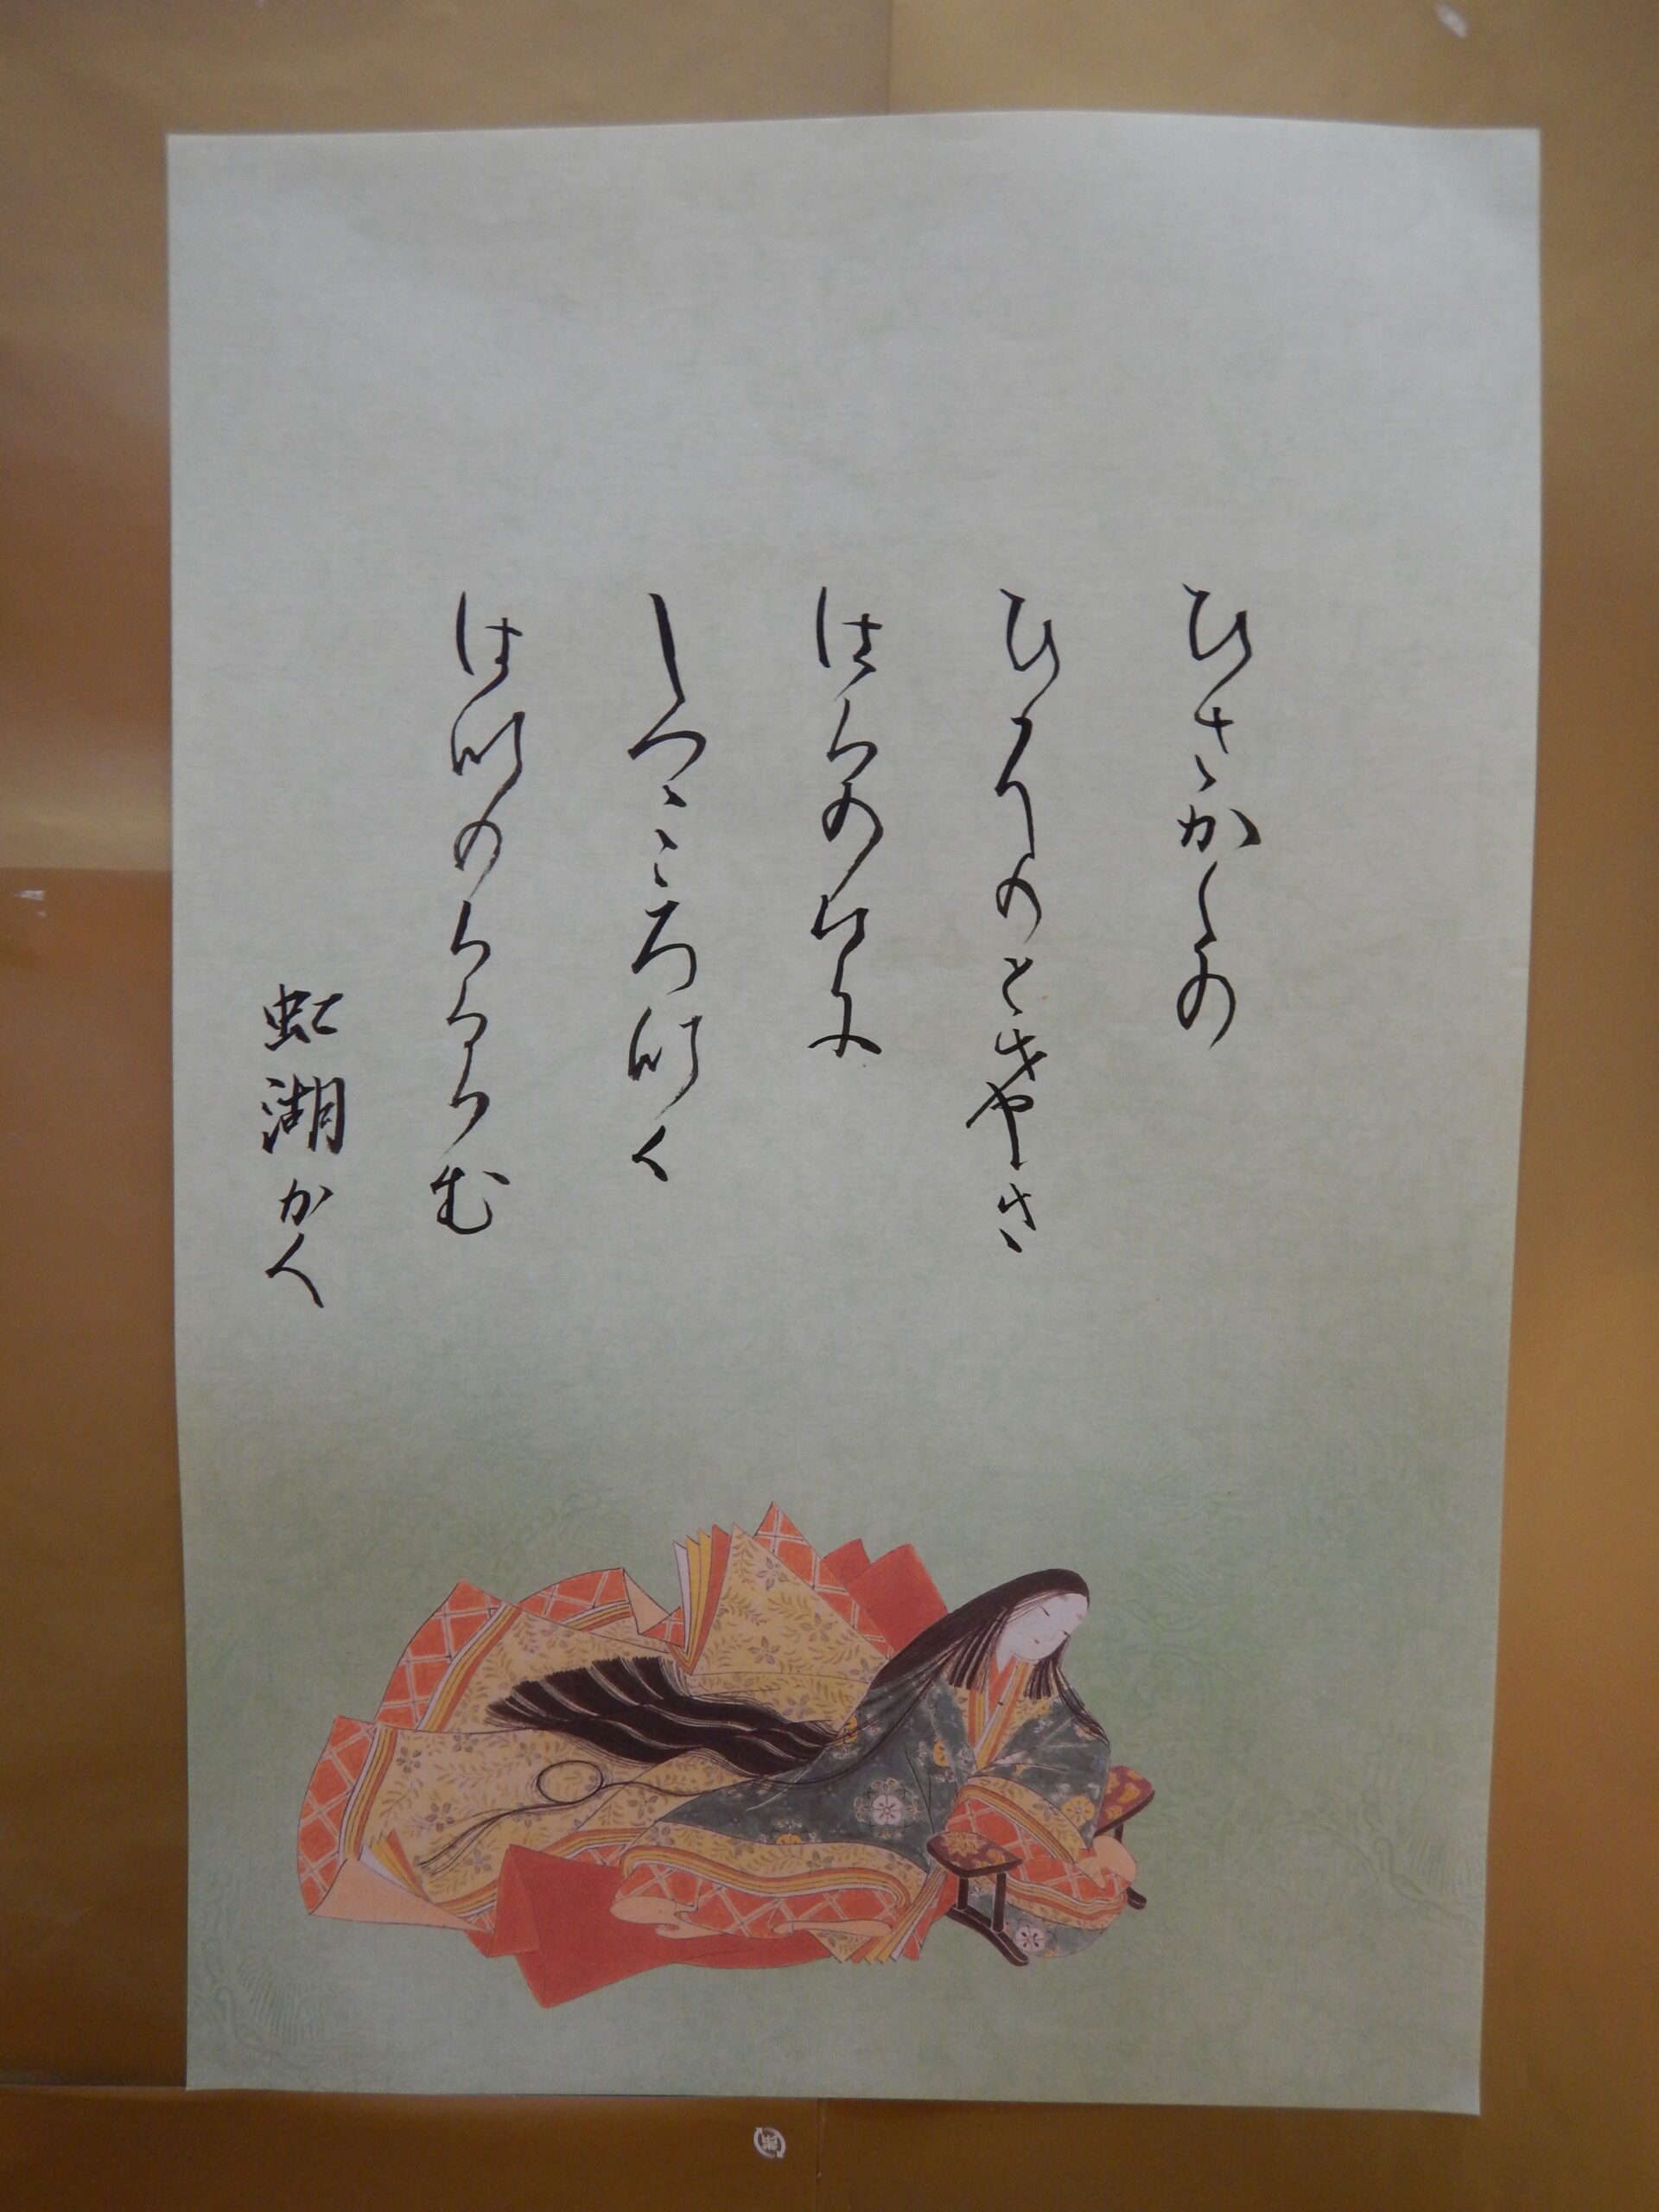 ひさかたの
ひかりのとけき
はるのひに
しつこゝろなく
はなのちるらむ
虹湖かく